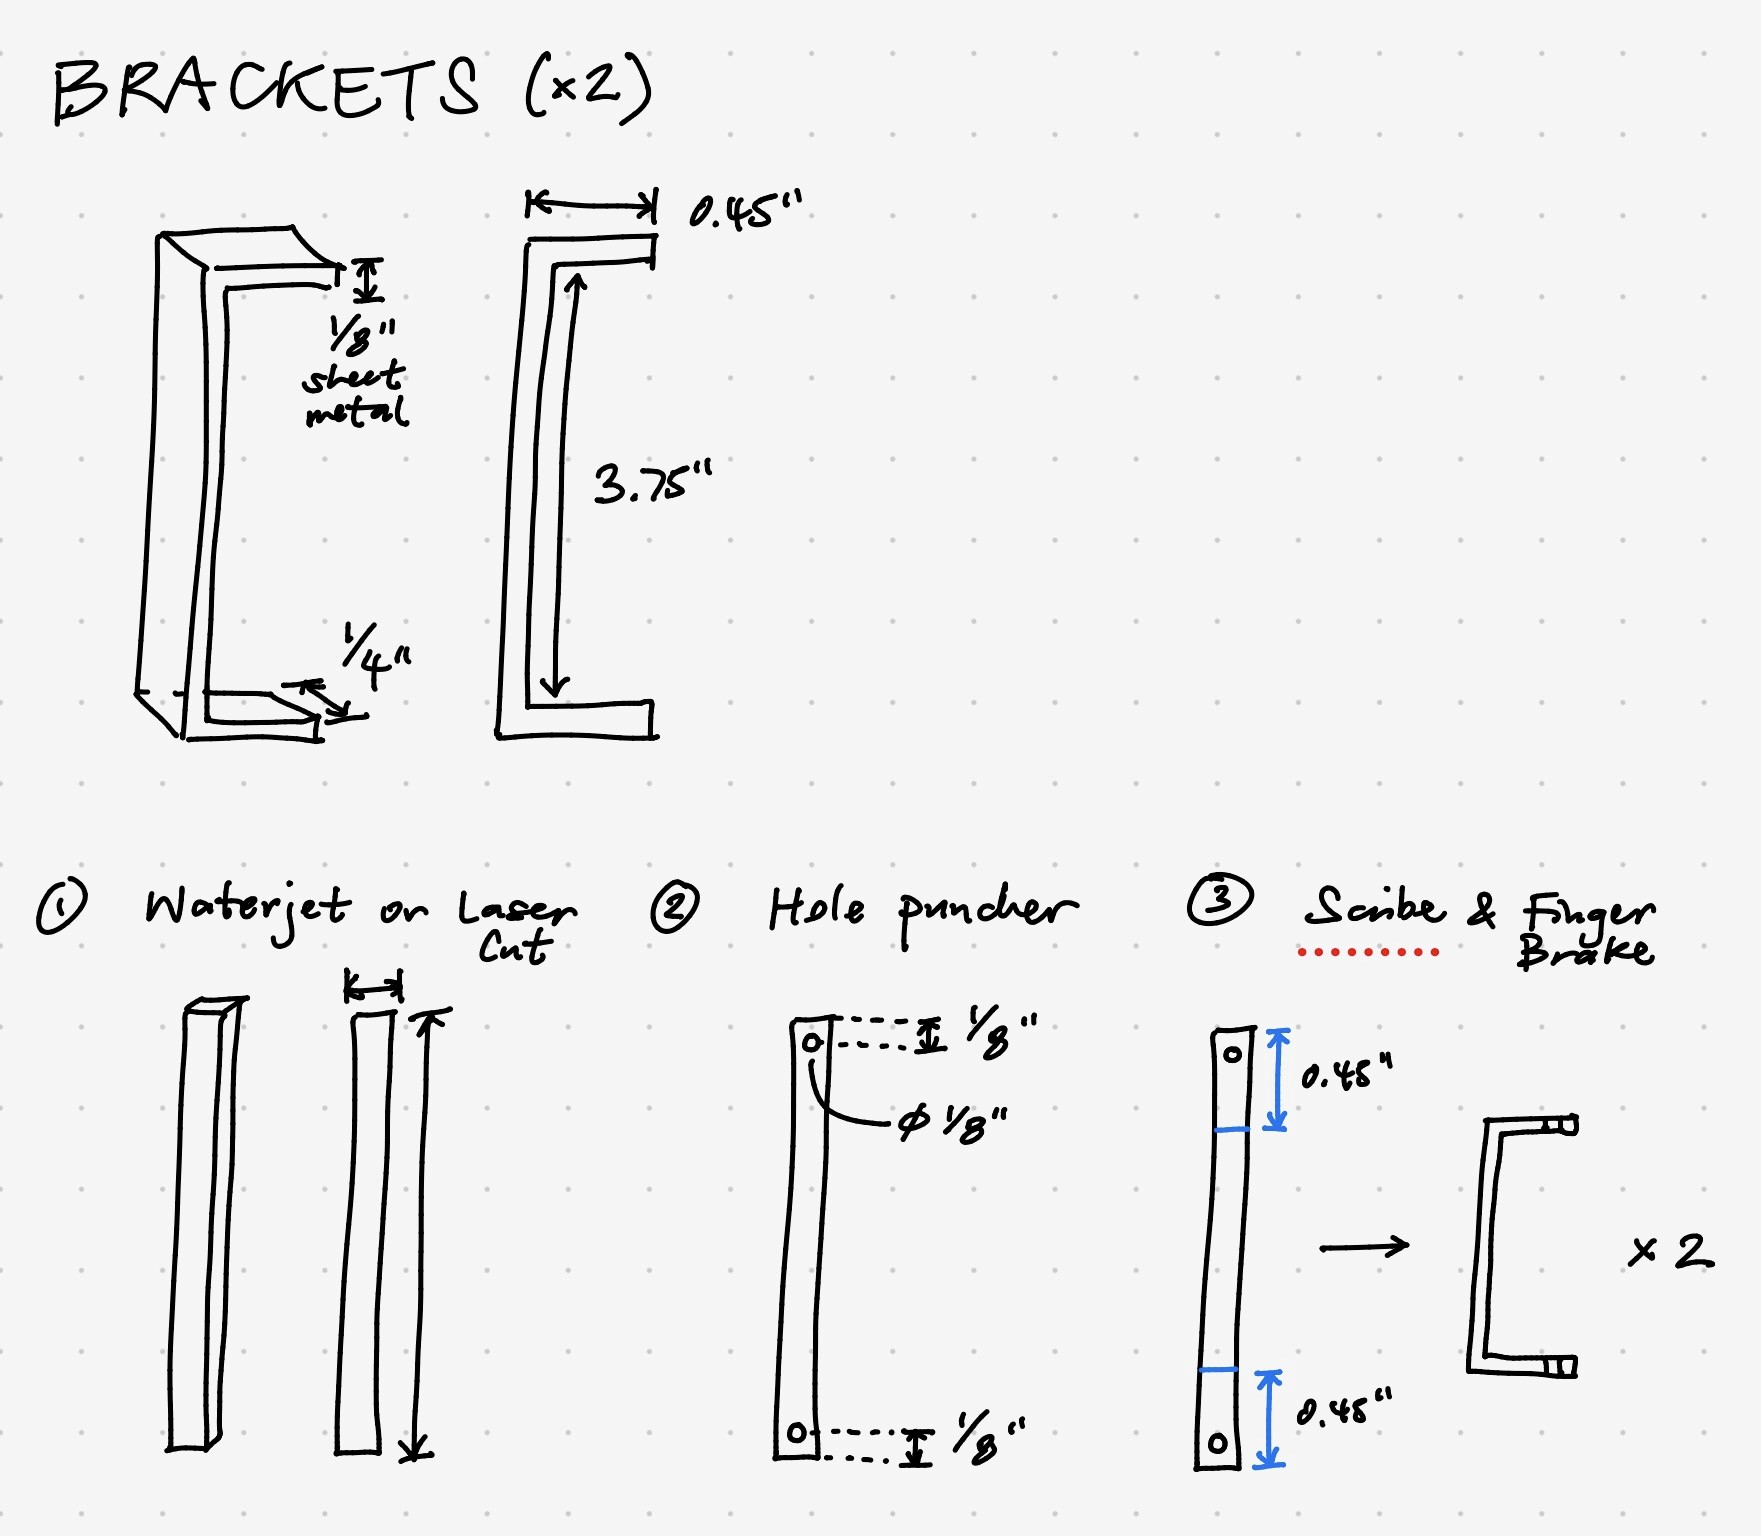 BRACKETS (x2)
0.45"
1/8"
sheet
metal
3.75"
1/4"
① Waterjet or Laser
Cut
② Hole puncher
1/8"
ø 1/8"
1/8"
③ Scribe & Finger
Brake
0.45"
x 2
0.45"